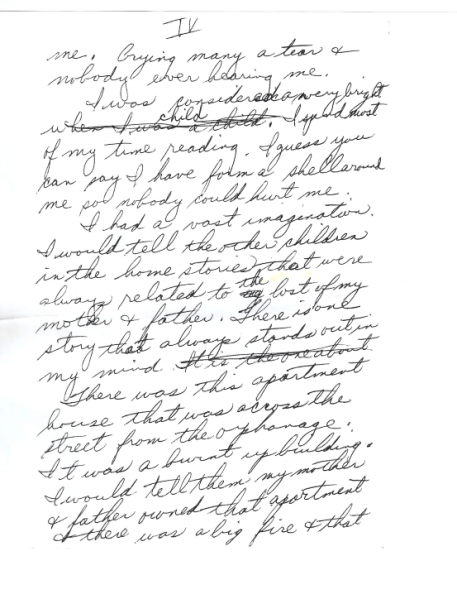 IV
me. Crying many a tear &
nobody ever hearing me.
I was considered a very bright
child
when I was a child. I spend most
of my time reading. I guess you
can say I have form a shell around
me so nobody could hurt me.
I had a vast imagination.
I would tell the other children
in the home stories that were
always related to the lost of my
mother & father. There is one
story that always stands out in
my mind. It is the one about
There was this apartment
house that was across the
street from the orphanage.
It was a burnt up building.
I would tell them my mother
& father owned that apartment
& there was a big fire & that